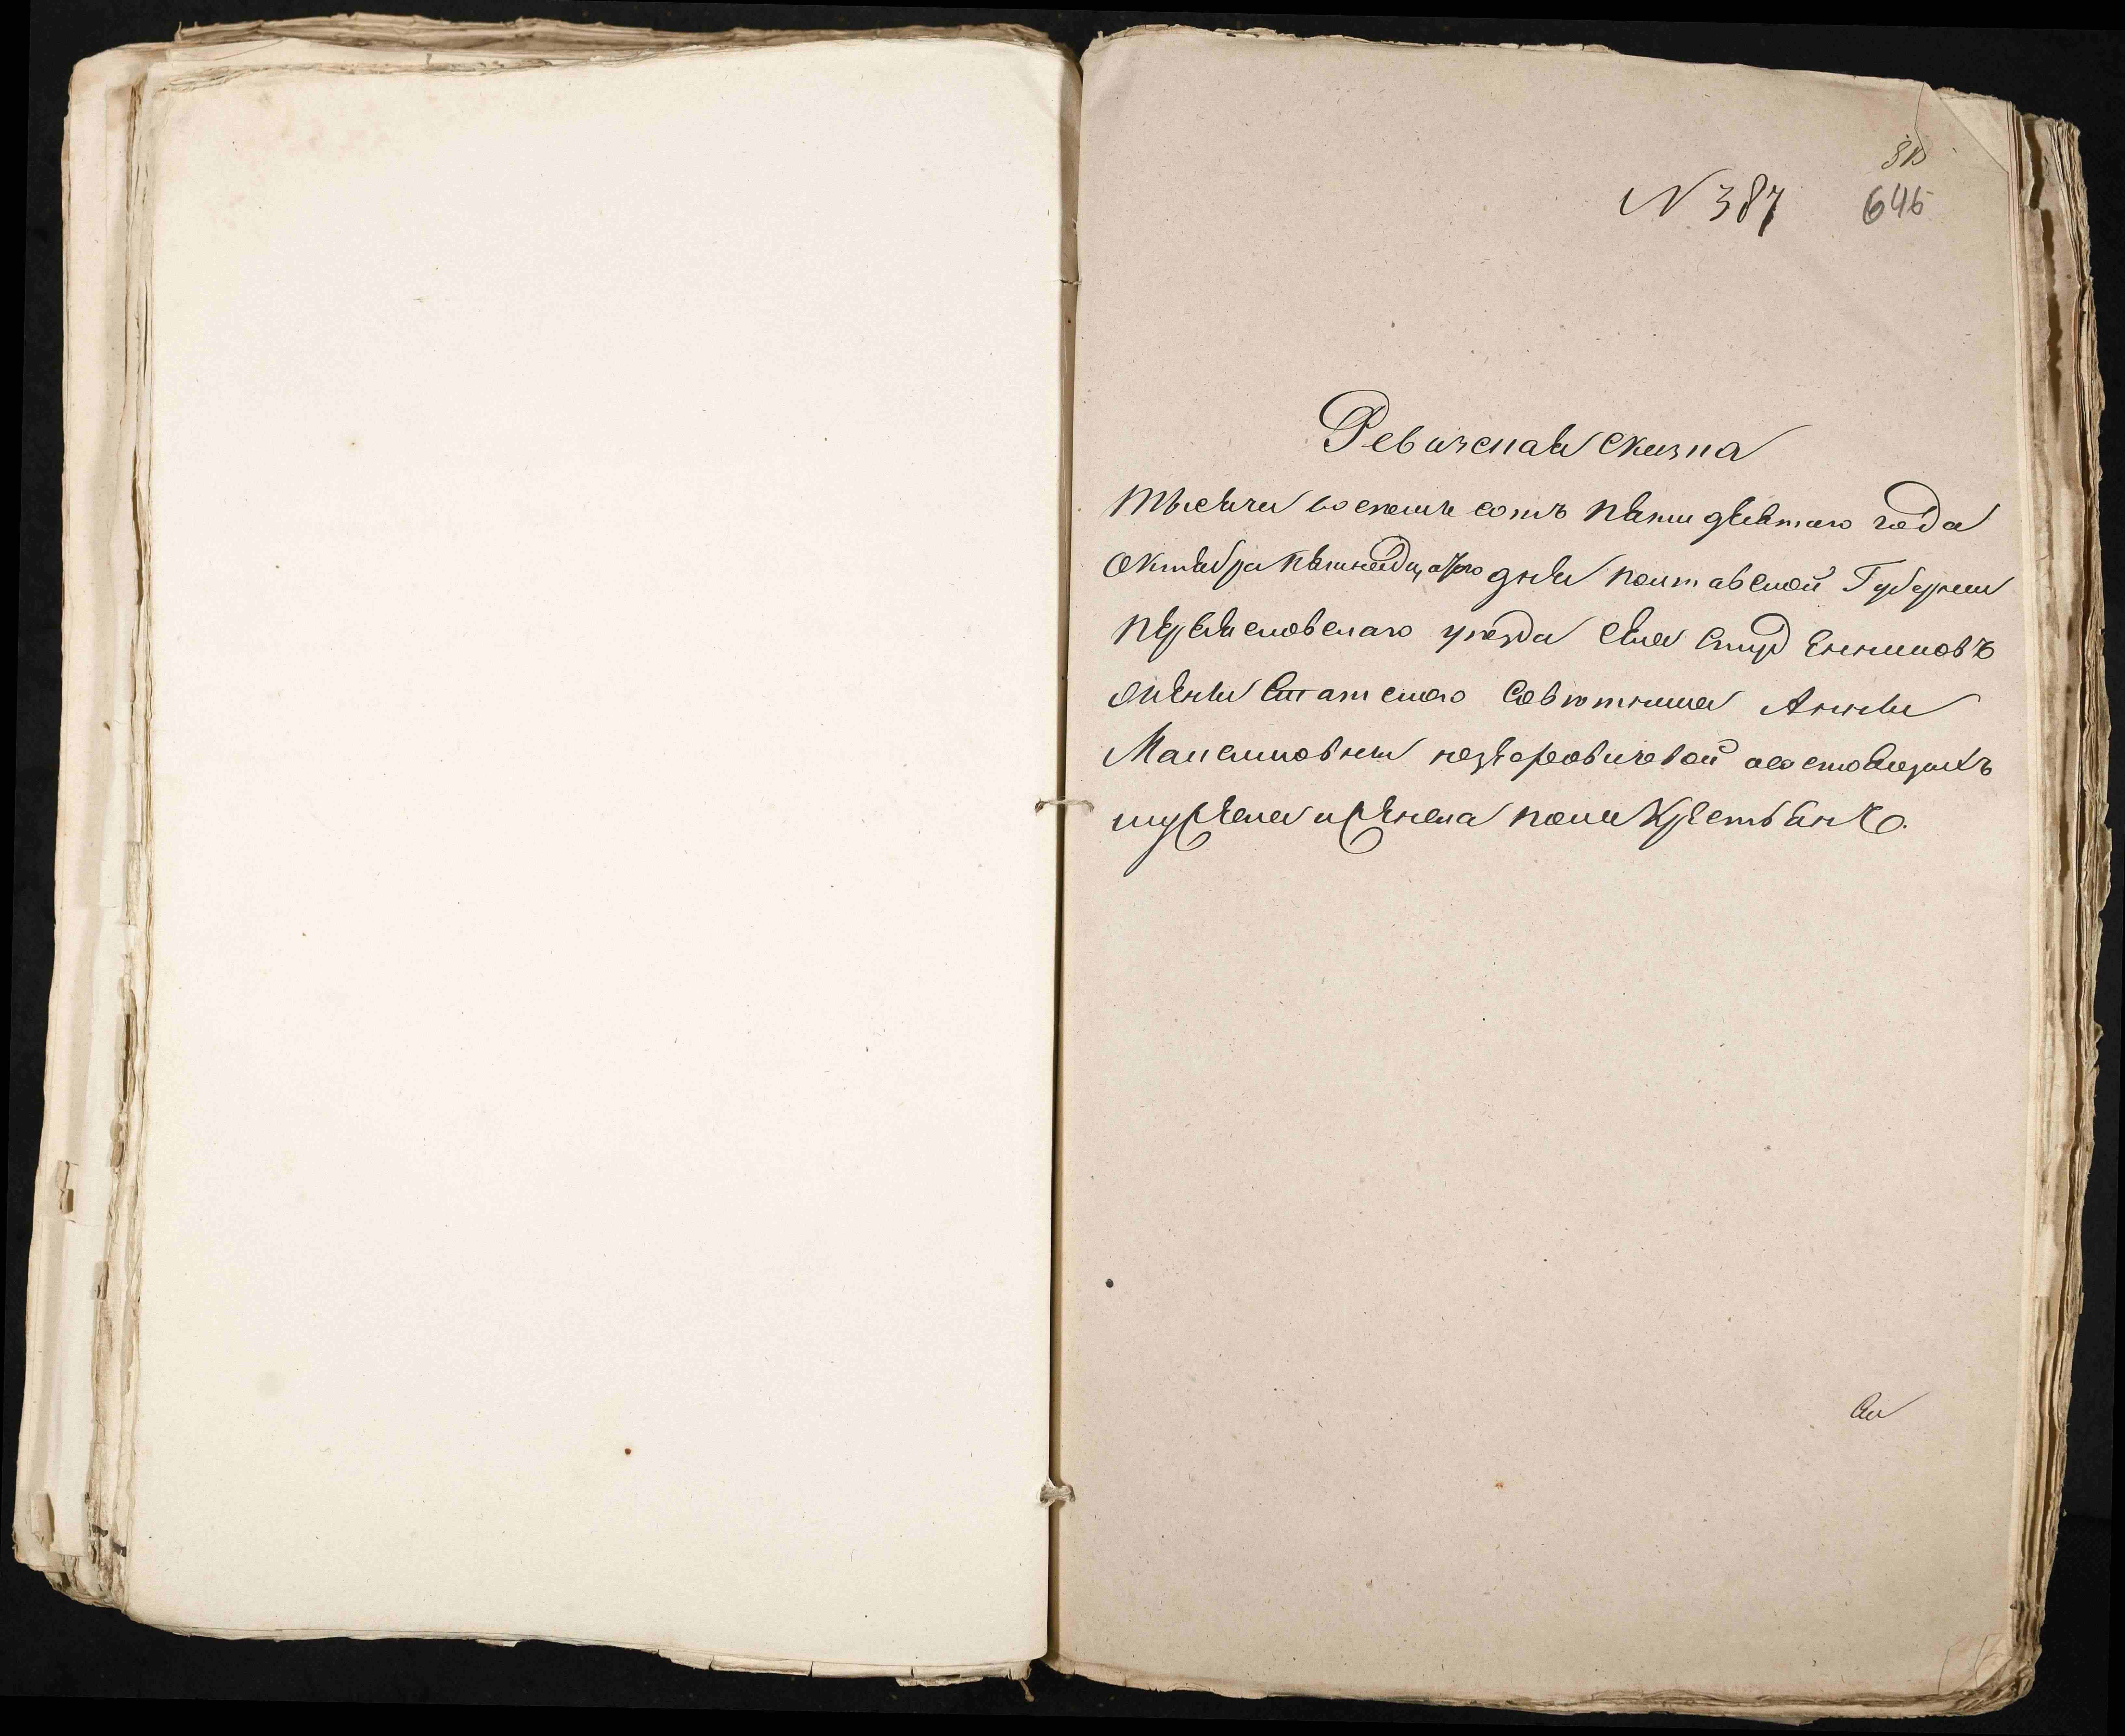 N 387
646
Ревизская сказка
тысяча восемь сотъ пятидесятаго года
Октября пятнадцатаго дня полтавской Губерніи
переяславскаго уезда села Студениковъ
жены Статского Советника Анны
Максимовны о состоящихъ
мужеска и женска пола Крестьянъ.